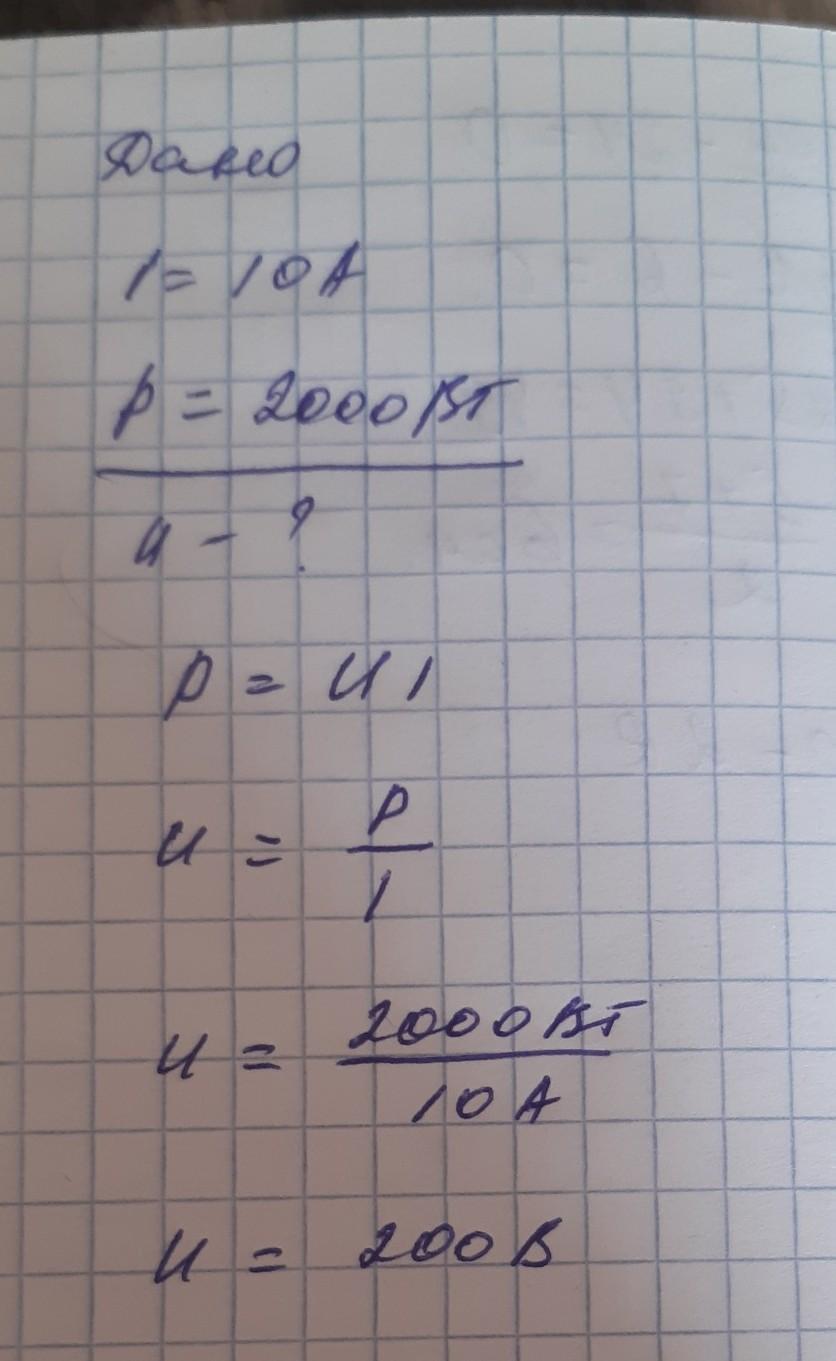 Дано
I = 10 А
P = 2000 Вт
U - ?
P = U I
U = P / I
U = 2000 Вт / 10 А
U = 200 В